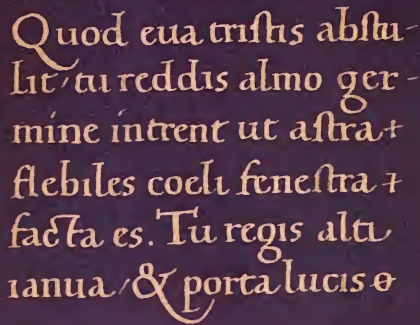 Quod eua tristis abstu-
lit/tu reddis almo ger-
mine intrent ut astra+
flebiles coeli fenestra+
facta es. Tu regis alti
ianua/& porta lucis